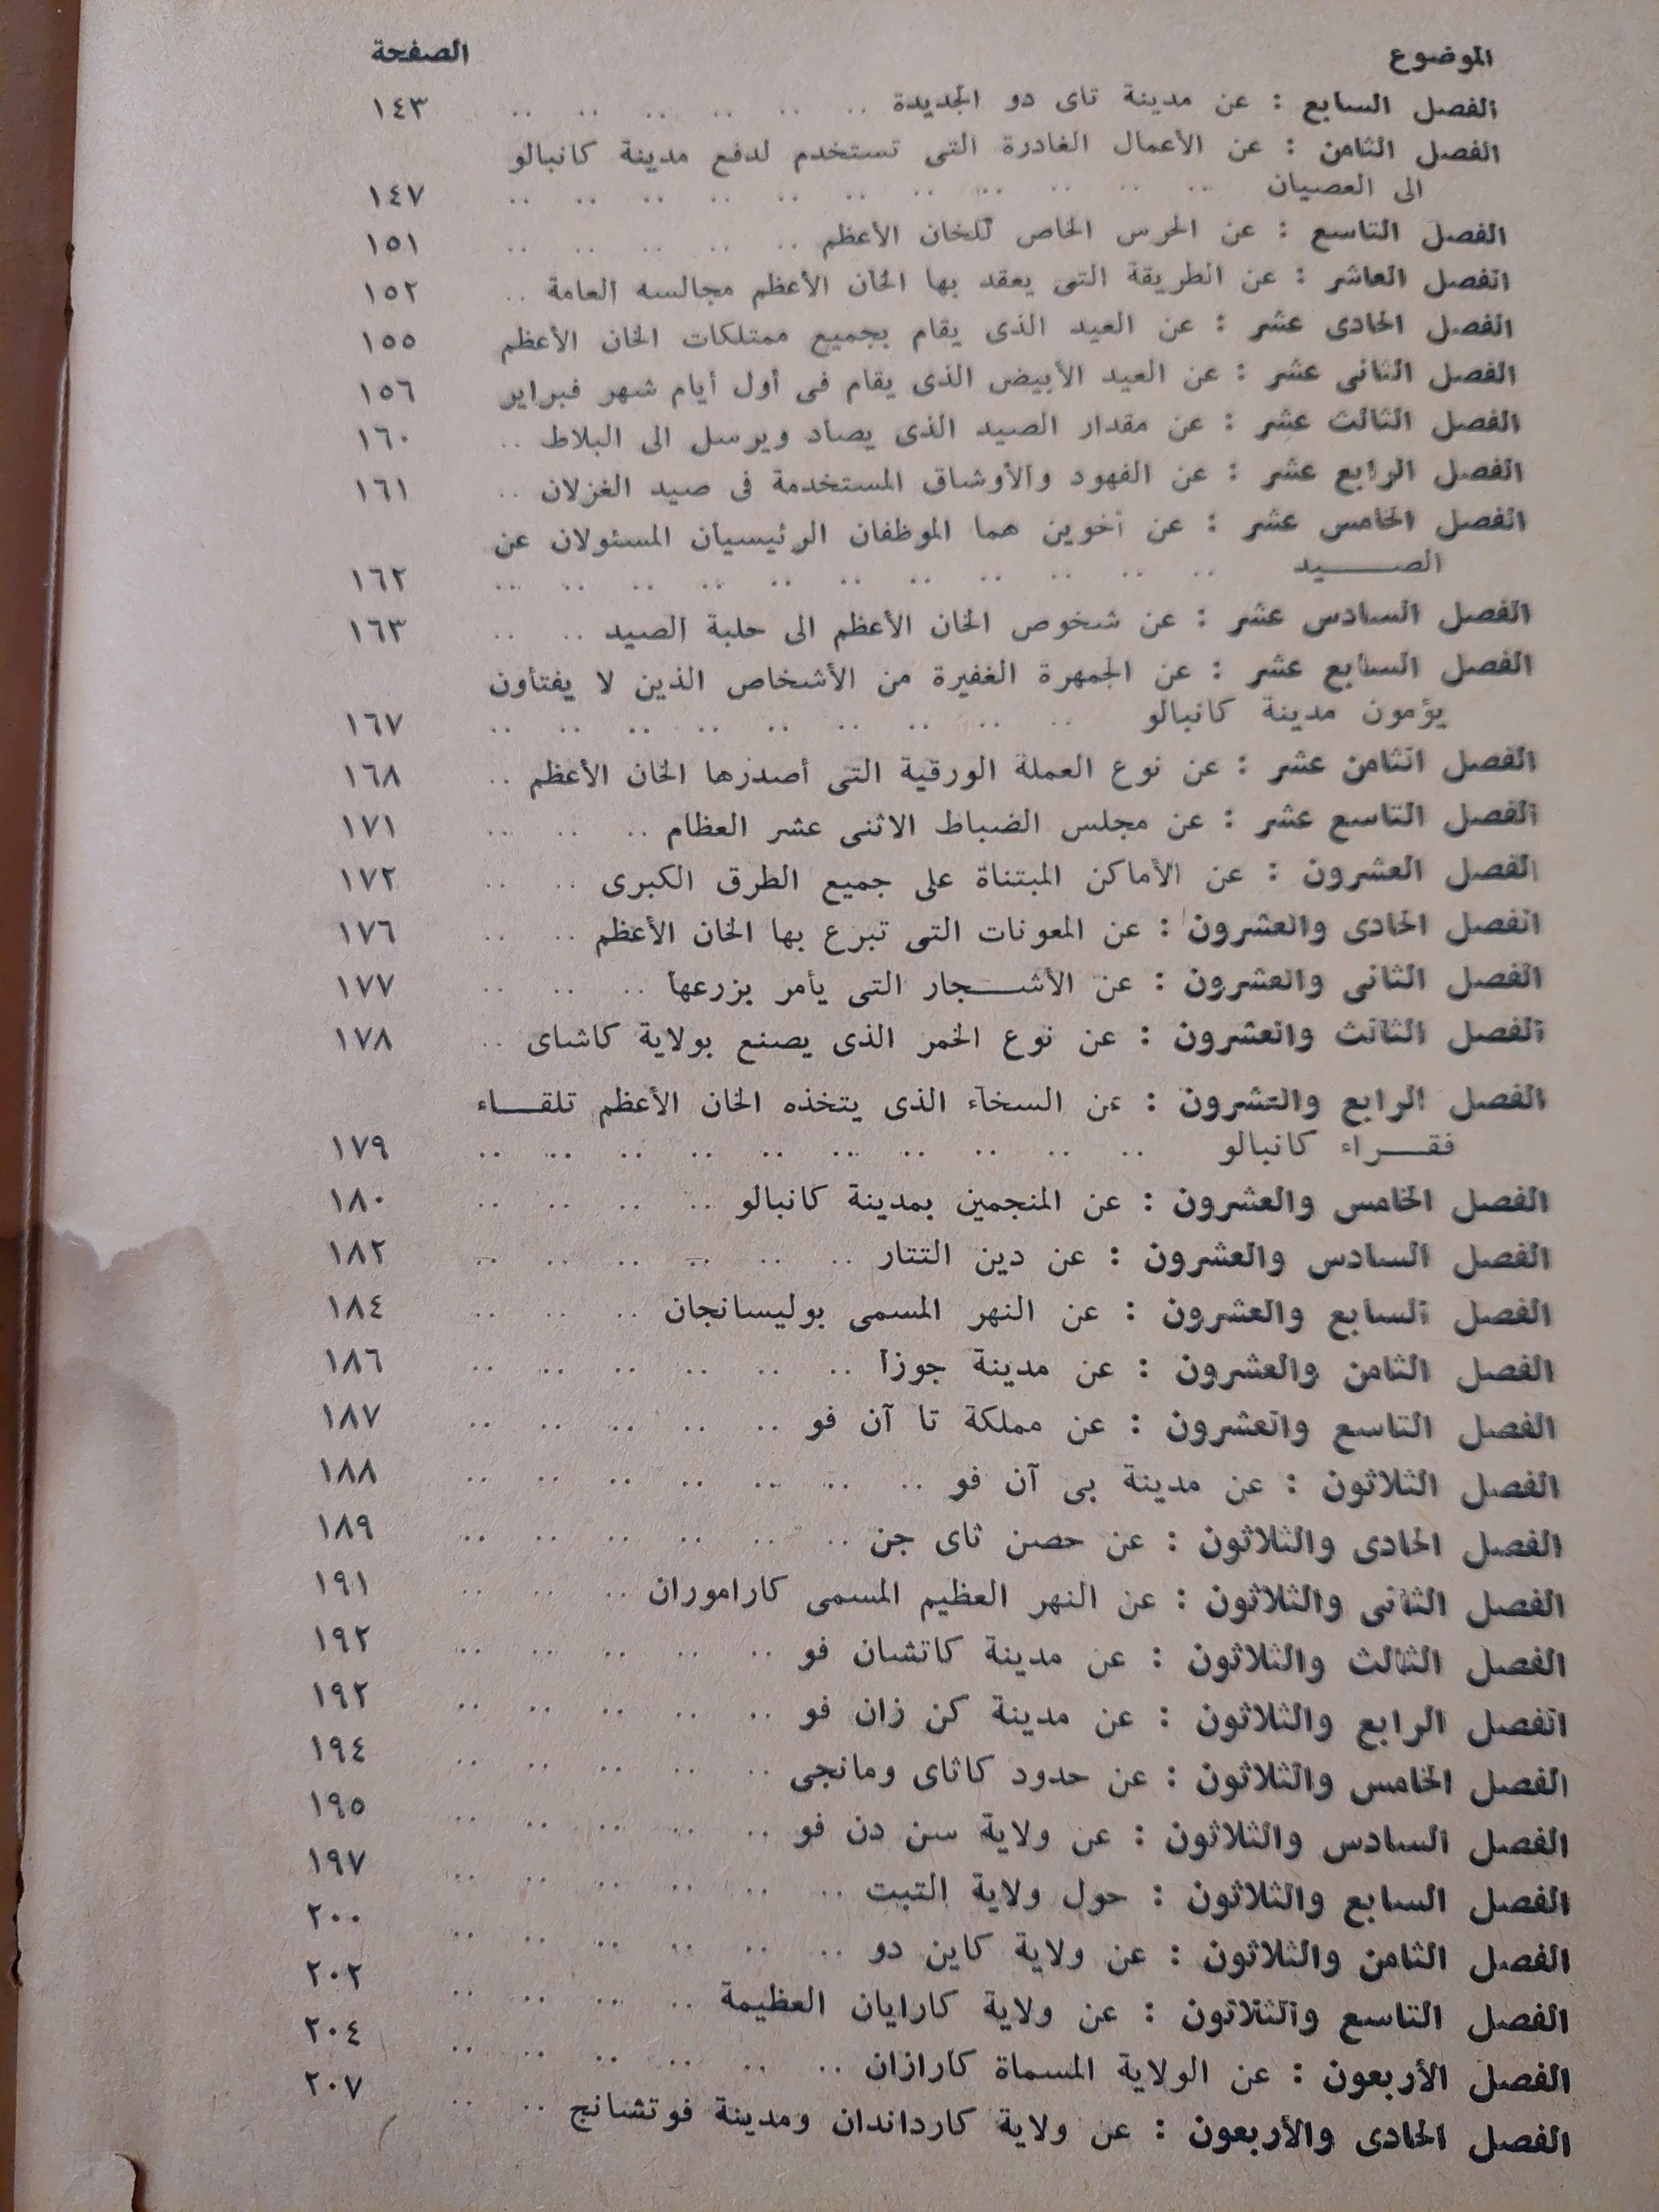 الموضوع الصفحة
الفصل السابع : عن مدينة تاى دو الجديدة .. .. .. .. .. .. ١٤٣
الفصل الثامن : عن الأعمال الغادرة التى تستخدم لدفع مدينة كانبالو
الى العصيان .. .. .. .. .. .. .. .. .. .. .. ١٤٧
الفصل التاسع : عن الحرس الخاص للخان الأعظم .. .. .. .. .. ١٥١
الفصل العاشر : عن الطريقة التى يعقد بها الخان الأعظم مجالسه العامة .. ١٥٢
الفصل الحادى عشر : عن العيد الذى يقام بجميع ممتلكات الخان الأعظم ١٥٥
الفصل الثانى عشر : عن العيد الأبيض الذى يقام فى أول أيام شهر فبراير ١٥٦
الفصل الثالث عشر : عن مقدار الصيد الذى يصاد ويرسل الى البلاط .. ١٦٠
الفصل الرابع عشر : عن الفهود والأوشاق المستخدمة فى صيد الغزلان .. ١٦١
الفصل الخامس عشر : عن أخوين هما الموظفان الرئيسيان المسئولان عن
الصـــيد .. .. .. .. .. .. .. .. .. .. .. ١٦٢
الفصل السادس عشر : عن شخوص الخان الأعظم الى حلبة الصيد .. .. ١٦٣
الفصل السابع عشر : عن الجمهرة الغفيرة من الأشخاص الذين لا يفتأون
يؤمون مدينة كانبالو .. .. .. .. .. .. .. .. .. ١٦٧
الفصل الثامن عشر : عن نوع العملة الورقية التى أصدرها الخان الأعظم .. ١٦٨
الفصل التاسع عشر : عن مجلس الضباط الاثنى عشر العظام .. .. .. ١٧١
الفصل العشرون : عن الأماكن المبتناة على جميع الطرق الكبرى .. .. ١٧٢
الفصل الحادى والعشرون : عن المعونات التى تبرع بها الخان الأعظم .. .. ١٧٦
الفصل الثانى والعشرون : عن الأشـــجار التى يأمر بزرعها .. .. .. ١٧٧
الفصل الثالث والعشرون : عن نوع الخمر الذى يصنع بولاية كاشاى .. ١٧٨
الفصل الرابع والعشرون : عن السخاء الذى يتخذه الخان الأعظم تلقـــاء
فقـــراء كانبالو .. .. .. .. .. .. .. .. .. .. ١٧٩
الفصل الخامس والعشرون : عن المنجمين بمدينة كانبالو .. .. .. .. ١٨٠
الفصل السادس والعشرون : عن دين التتار .. .. .. .. .. .. ١٨٢
الفصل السابع والعشرون : عن النهر المسمى بوليسانجان .. .. .. ١٨٤
الفصل الثامن والعشرون : عن مدينة جوزا .. .. .. .. .. .. ١٨٦
الفصل التاسع والعشرون : عن مملكة تا آن فو .. .. .. .. .. ١٨٧
الفصل الثلاثون : عن مدينة بى آن فو .. .. .. .. .. .. .. ١٨٨
الفصل الحادى والثلاثون : عن حصن ثاى جن .. .. .. .. .. .. ١٨٩
الفصل الثانى والثلاثون : عن النهر العظيم المسمى كاراموران .. .. .. ١٩١
الفصل الثالث والثلاثون : عن مدينة كاتشان فو .. .. .. .. .. ١٩٢
الفصل الرابع والثلاثون : عن مدينة كن زان فو .. .. .. .. .. ١٩٢
الفصل الخامس والثلاثون : عن حدود كاثاى ومانجى .. .. .. .. .. ١٩٤
الفصل السادس والثلاثون : عن ولاية سن دن فو .. .. .. .. .. ١٩٥
الفصل السابع والثلاثون : حول ولاية التبت .. .. .. .. .. .. ١٩٧
الفصل الثامن والثلاثون : عن ولاية كاين دو .. .. .. .. .. .. ٢٠٠
الفصل التاسع والثلاثون : عن ولاية كارايان العظيمة .. .. .. .. ٢٠٢
الفصل الأربعون : عن الولاية المسماة كارازان .. .. .. .. .. .. ٢٠٤
الفصل الحادى والأربعون : عن ولاية كارداندان ومدينة فوتشانج .. .. ٢٠٧